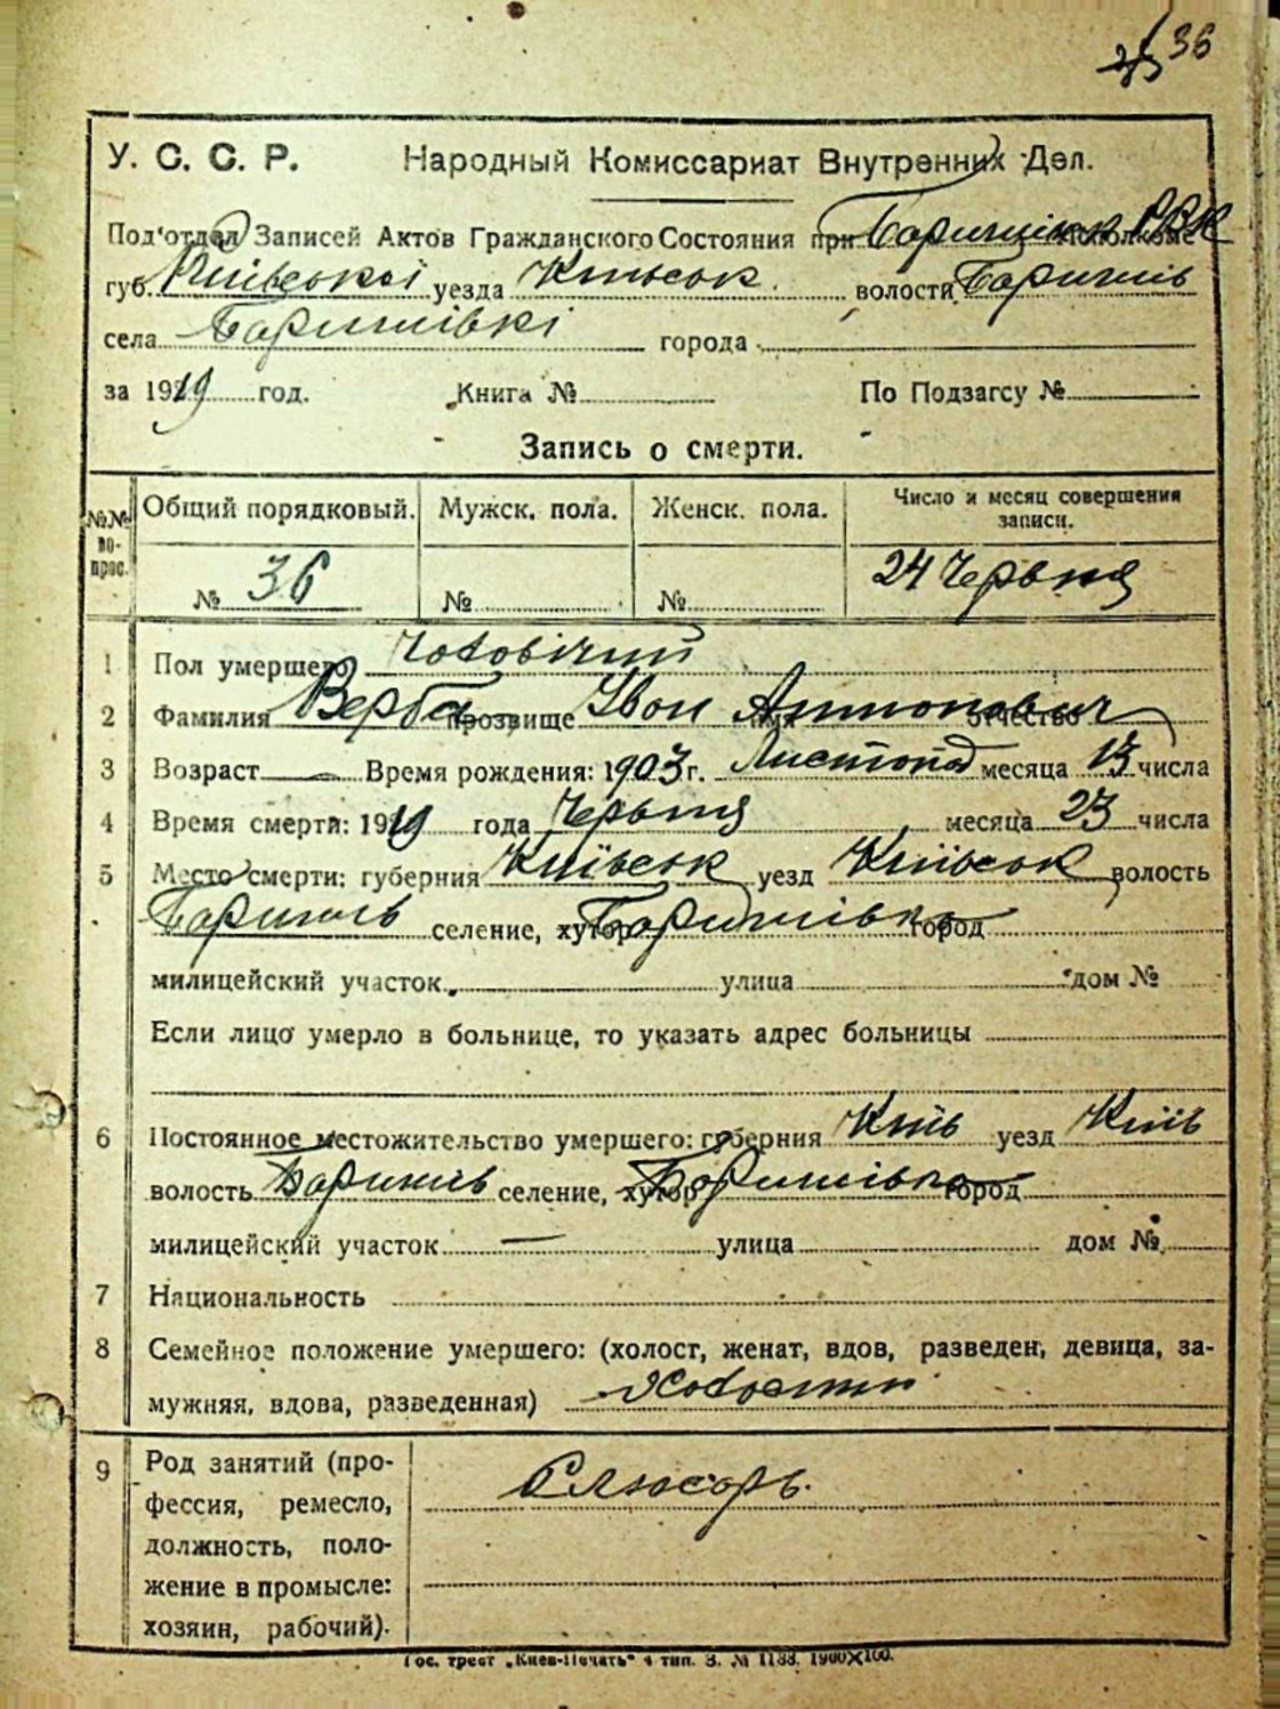 36
У. С. С. Р. Народный Комиссариат Внутренних Дел.
Под'отдел Записей Актов Гражданского Состояния при Баришівськ РВК
губ. Київської уезда Київськ. волости Баришів
села Баришівкі города
за 1919 год. Книга № По Подзагсу №
Запись о смерти.
№№ вопрос. Общий порядковый. Мужск. пола. Женск. пола. Число и месяц совершения записи.
№ 36 № № 24 Червня
1 Пол умершего Чоловічий
2 Фамилия Верба прозвище Іван имя Антонович отчество
3 Возраст — Время рождения: 1903 г. Листопад месяца 13 числа
4 Время смерти: 1919 года Червня месяца 23 числа
5 Место смерти: губерния Київськ уезд Київськ волость
Баришів селение, хутор Баришівка город
милицейский участок улица дом №
Если лицо умерло в больнице, то указать адрес больницы
6 Постоянное местожительство умершего: губерния Київ уезд Київ
волость Баришів селение, хутор Баришівка город
милицейский участок — улица дом №
7 Национальность
8 Семейное положение умершего: (холост, женат, вдов, разведен, девица, за-
мужняя, вдова, разведенная) Холостий
9 Род занятий (про-
фессия, ремесло,
должность, поло-
жение в промысле:
хозяин, рабочий).
Слюсарь.
Гос. трест „Киев-Печать" 4 тип. З. № 1133. 1900×100.